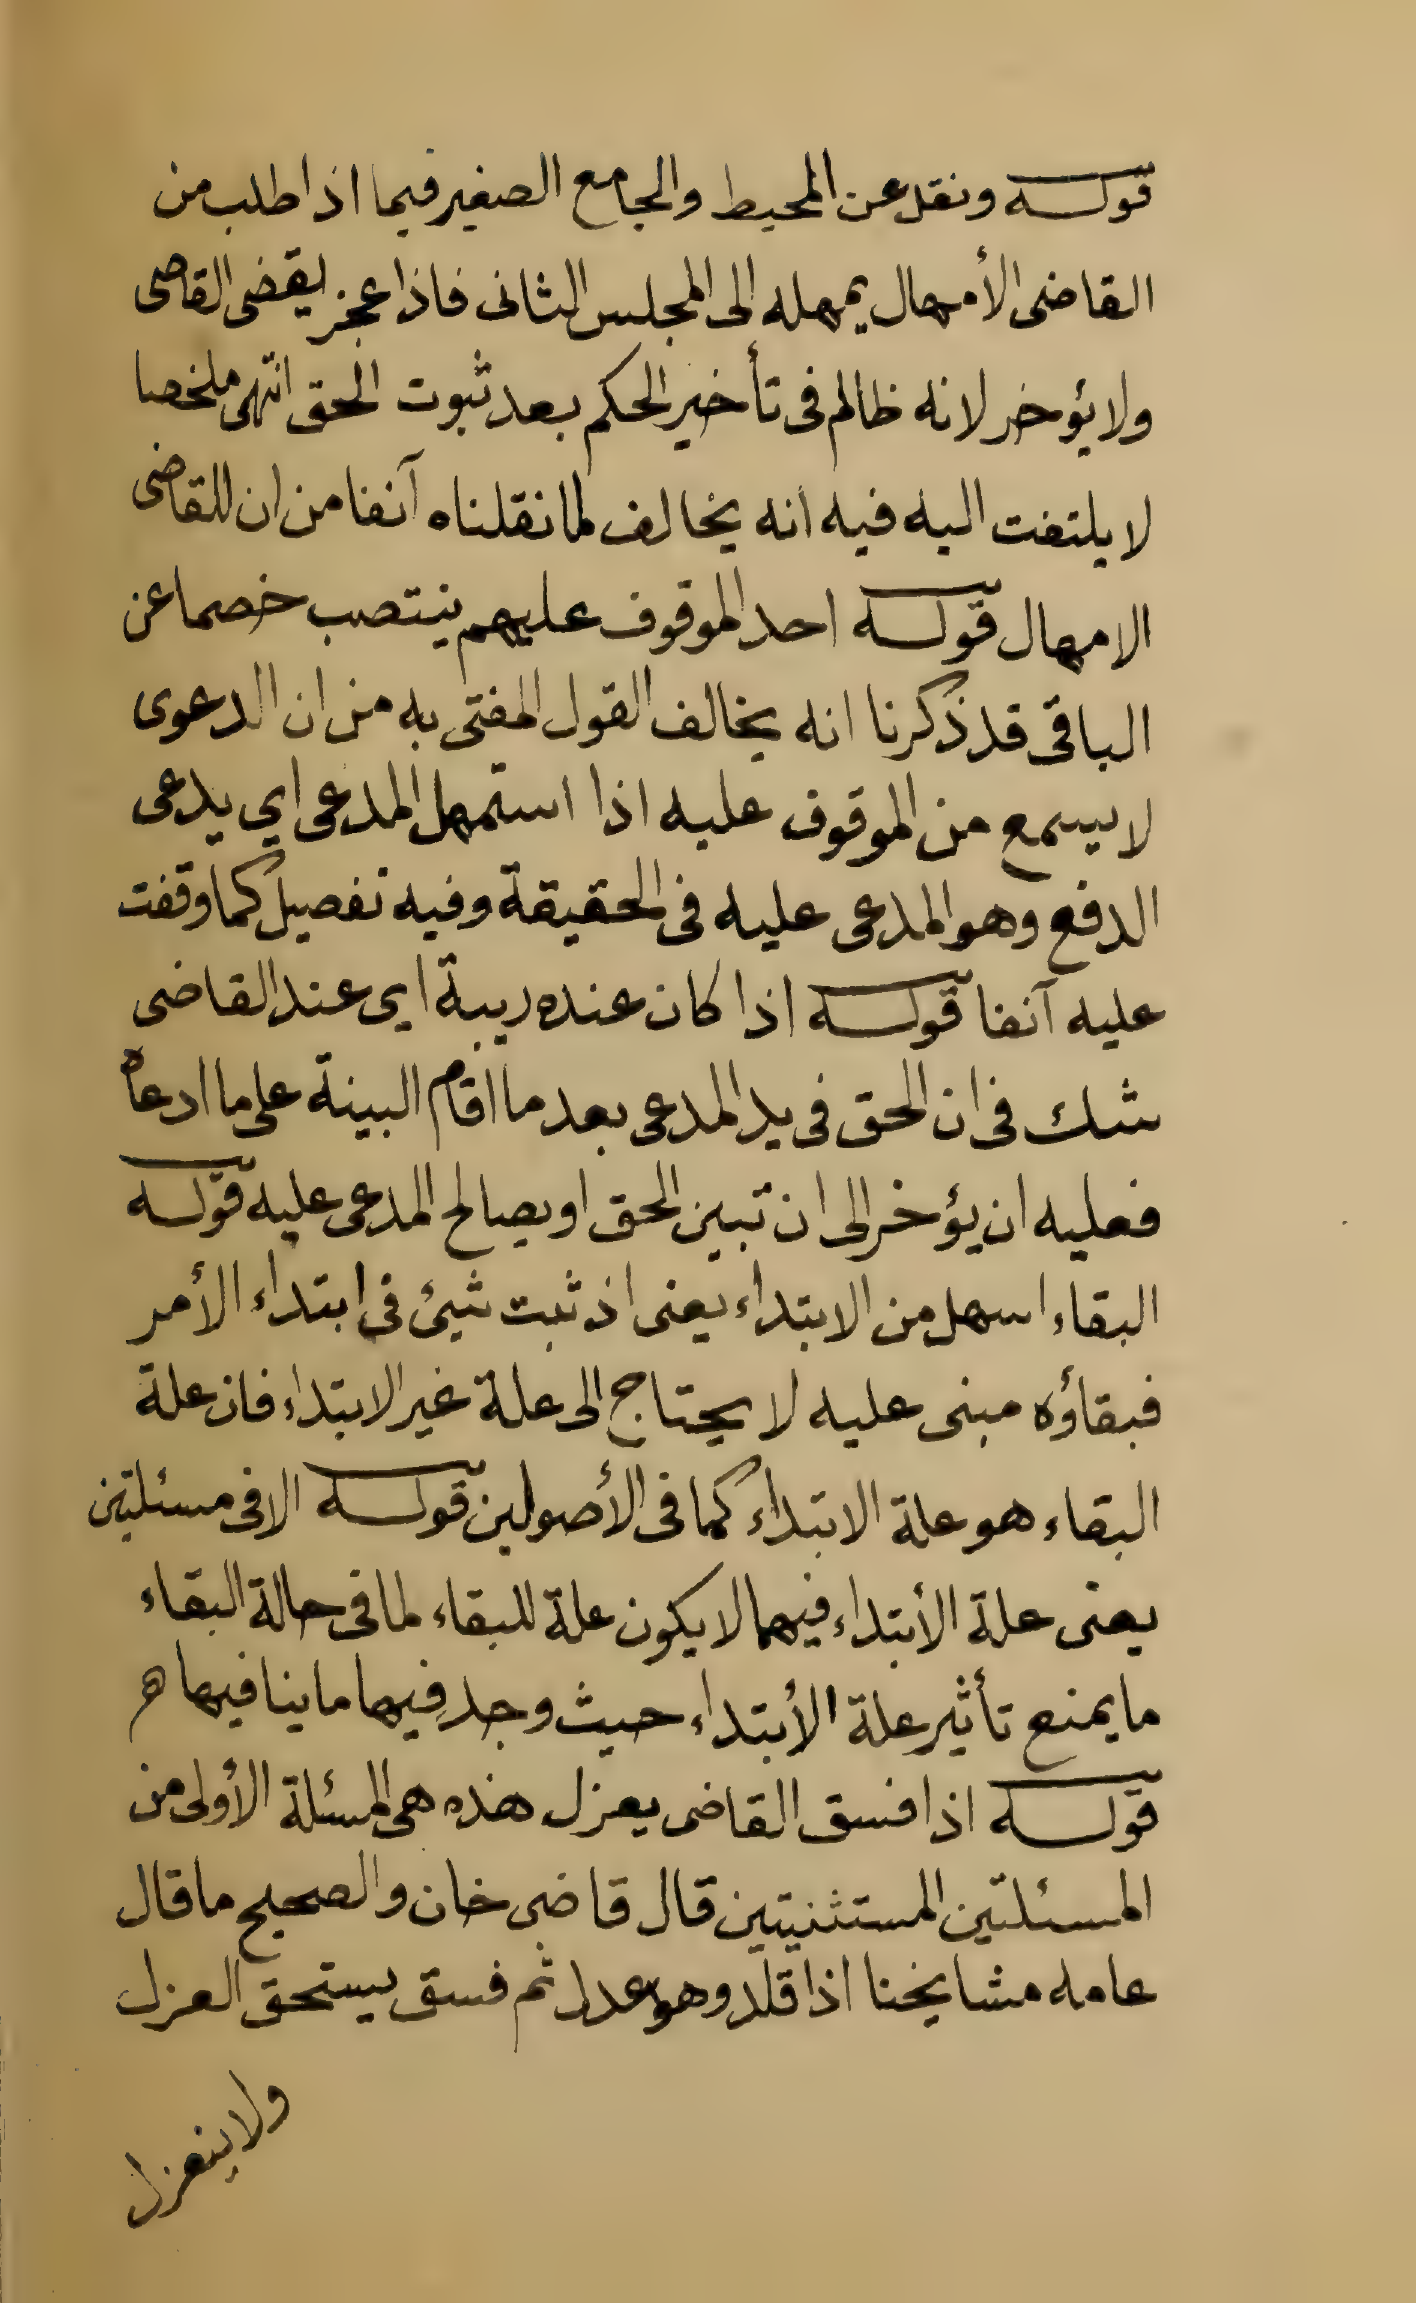 قوله ونقل عن المحيط والجامع الصغير فيما اذا طلب من
القاضى الأمهال يمهله الى المجلس الثانى فاذا عجز يقضى القاضى
ولا يؤخر لانه ظالم فى تأخير الحكم بعد ثبوت الحق انتهى ملخصا
لا يلتفت اليه فيه انه يخالف لما نقلناه آنفا من ان للقاضى
الامهال قوله احد الموقوف عليهم ينتصب خصما عن
الباقى قد ذكرنا انه يخالف القول المفتى به من ان الدعوى
لا يسمع من الموقوف عليه اذا استمهل المدعى اي يدعى
الدفع وهو المدعى عليه فى الحقيقة وفيه تفصيل كما وقفت
عليه آنفا قوله اذا كان عنده ريبة اي عند القاضى
شك فى ان الحق فى يد المدعى بعد ما اقام البينة على ما ادعاه
فعليه ان يؤخر الى ان تبين الحق او يصالح المدعى عليه قوله
البقاء اسهل من الابتداء يعنى اذ ثبت شيئ فى ابتداء الأمر
فبقاؤه مبنى عليه لا يحتاج الى علة غير الابتداء فان علة
البقاء هو علة الابتداء كما فى الأصولين قوله الا فى مسئلتين
يعنى علة الأبتداء فيهما لا يكون علة للبقاء لما فى حالة البقاء
ما يمنع تأثير علة الأبتداء حيث وجد فيها ما ينافيها هم
قوله اذا فسق القاضى يعزل هذه هى المسئلة الأولى من
المسئلتين المستثنيتين قال قاضى خان والصحيح ما قال
عامه مشايخنا اذا قلد وهو عدل ثم فسق يستحق العزل
ولا ينعزل